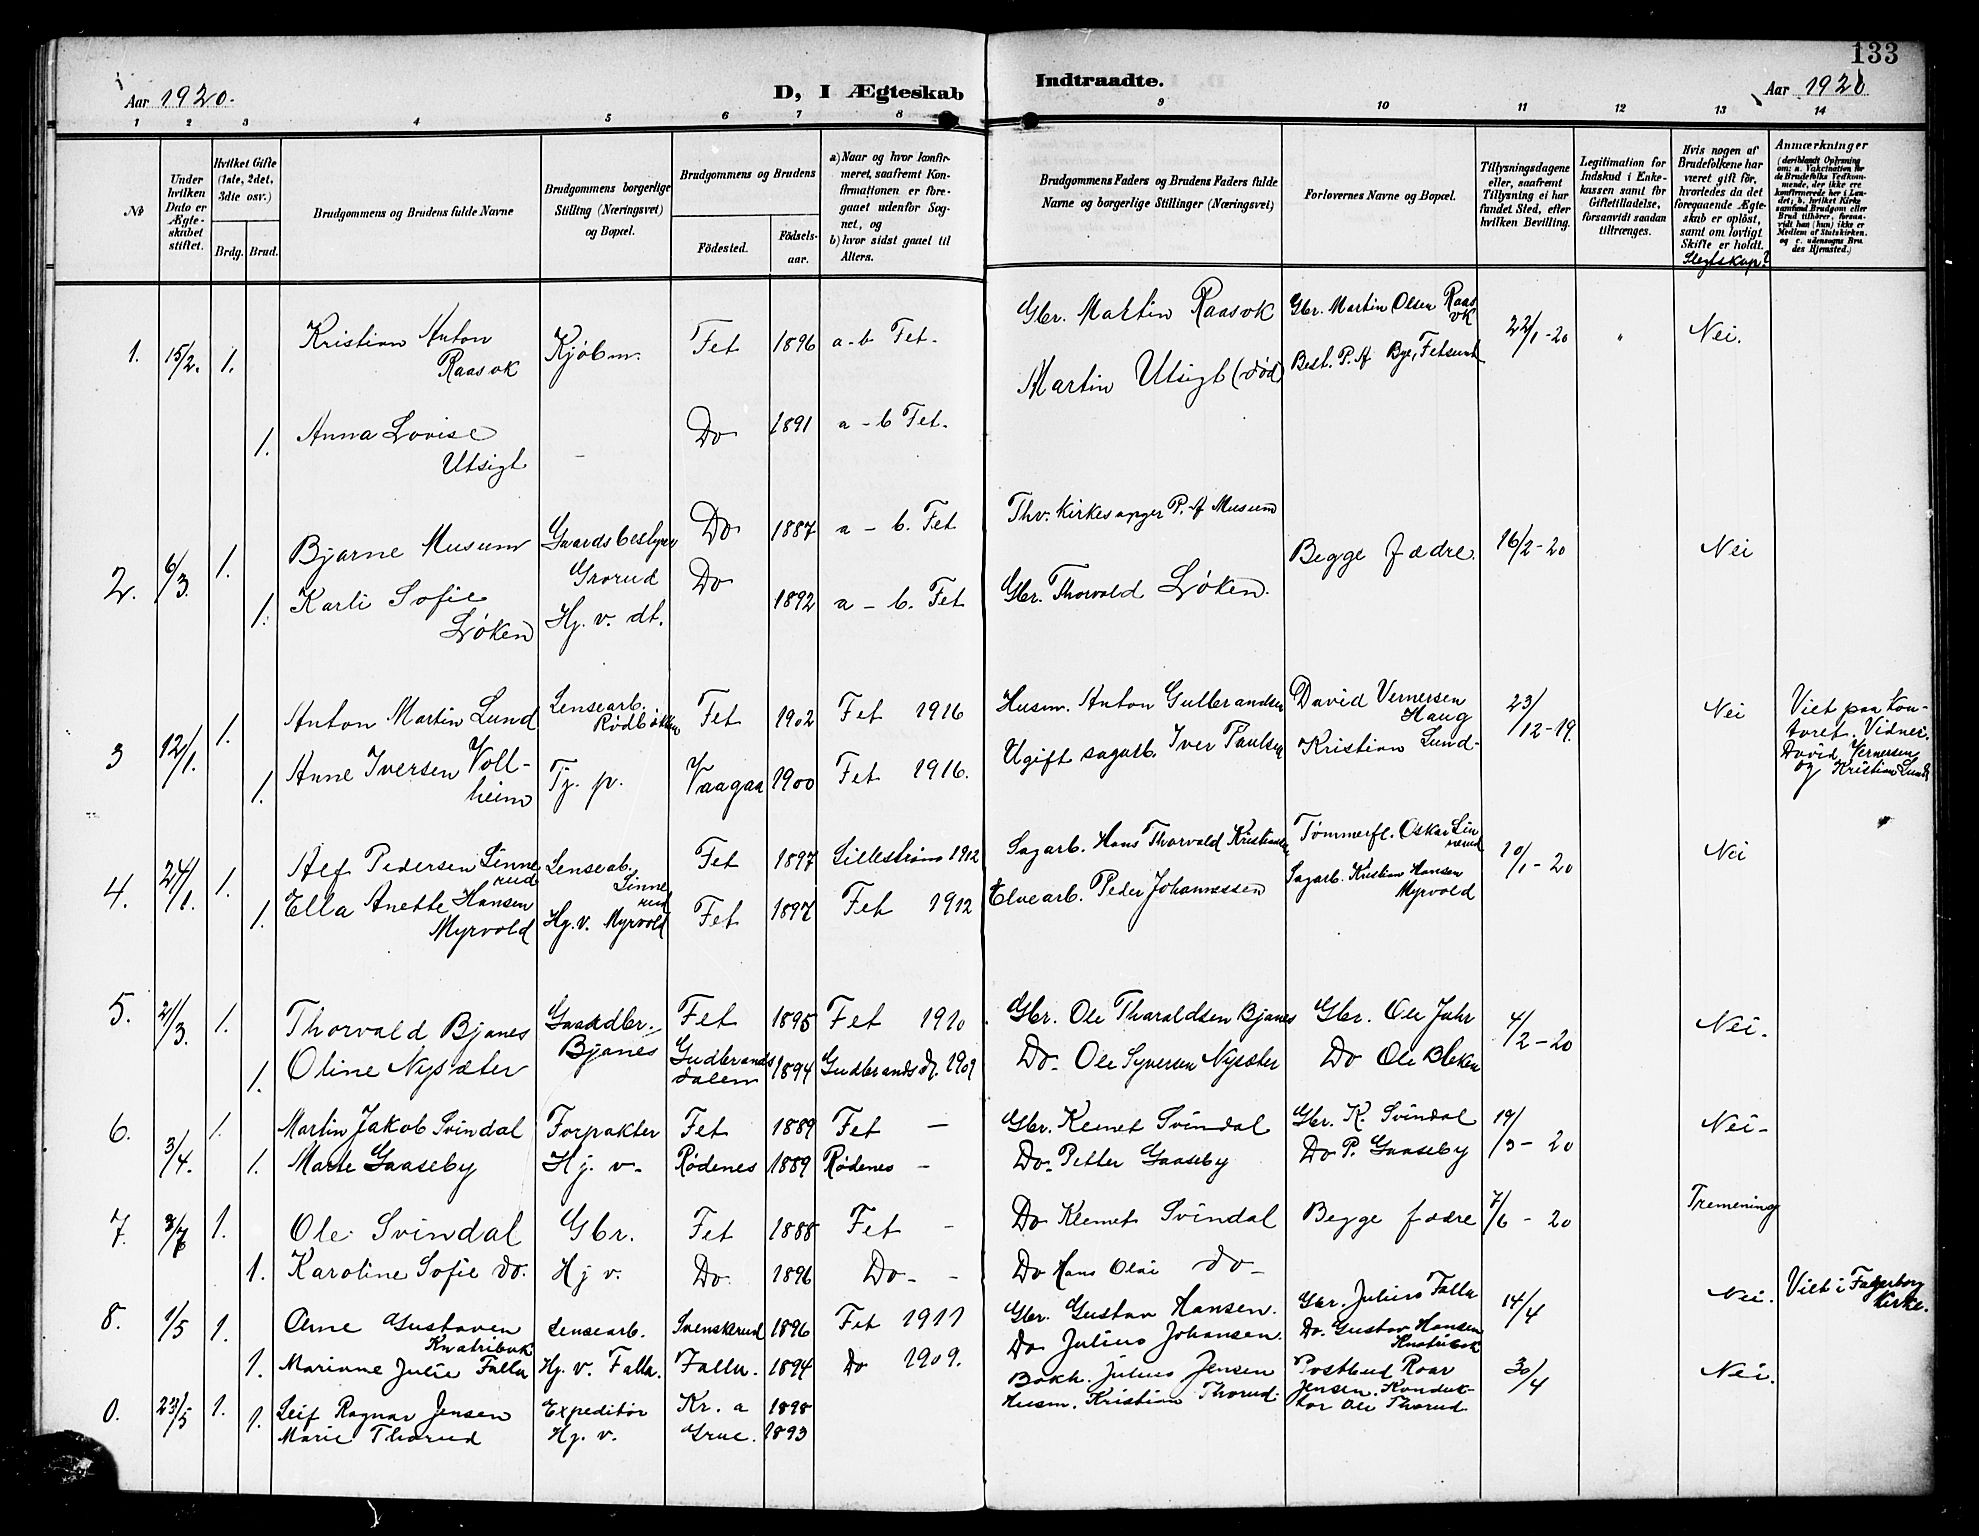 133
Aar 1920.
D, I Ægteskab
Indtraadte.
Aar 1920
1 2 3 4 5 6 7 8 9 10 11 12 13 14
No
Under hvilken Dato er Ægteskabet stiftet.
Hvilket Gifte (1ste, 2det, 3dte osv.)
Brdg. Brud.
Brudgommens og Brudens fulde Navne
Brudgommens borgerlige Stilling (Næringsvei) og Bopæl.
Brudgommens og Brudens
Födested.
Födselsaar.
a) Naar og hvor konfirmeret, saafremt Konfirmationen er foregaaet udenfor Sognet, og
b) hvor sidst gaaet til Alters.
Brudgommens Faders og Brudens Faders fulde Navne og borgerlige Stillinger (Næringsvei)
Forlovernes Navne og Bopæl.
Tillysningsdagene eller, saafremt Tillysning ei har fundet Sted, efter hvilken Bevilling.
Legitimation for Indskud i Enkekassen samt for Giftetilladelse, forsaavidt saadan tiltrænges.
Hvis nogen af Brudefolkene har været gift för, hvorledes da det foregaaende Ægteskab er oplöst, samt om lovligt Skifte er holdt.
Slegtskap?
Anmærkninger
(deriblandt Oplysning om: a. Vakcination for de Brudefolks Vedkommende, der ikke ere konfirmerede her i Landet; b. hvilket Kirkesamfund Brudgom eller Brud tilhörer, forsaavidt han (hun) ikke er Medlem af Statskirken, og c. udensogns Brudes Hjemsted.)
1. 15/2. 1. Kristian Anton Raasok Kjøbm. Fet 1896 a-b Fet. Gbr. Martin Raasok Gbr. Martin Olsen Raasok 22/1-20 " Nei.
Martin Utsigt (død) Best. P. A Bye, Fetsund
1. Anna Lovise Utsigt Do 1891 a - b Fet.
2. 6/3. 1. Bjarne Musum Gaardsbestyrer Grorud Do 1887 a - b. Fet Thv. Kirkesanger P. A Musum Begge fædre. 16/2-20 Nei
1. Karli Sofie Løken Hj. v. dt. Do 1892 a - b. Fet Gbr. Thorvald Løken.
3 12/1. 1. Anton Martin Lund Lensearb. Rødbøkken Fet 1902 Fet 1916 Husm. Anton Gulbrandsen David Vernersen Haug 23/12-19. Nei Viet paa kontoret. Vidner. David Vernersen og Kristian Lund
1. Anne Iversen Vollheim Tj. p. Vaagaa 1900 Fet 1916. Ugift sagarb. Iver Paulsen Kristian Lund-
4. 24/1. 1. Alf Pedersen Linnerud Lenseab. Linnerud Fet 1897 Lillestrøm 1912 Sagarb. Hans Thorvald Kristiansen Tømmerfl. Oskar Linnerud 10/1-20 Nei
1. Ella Anette Hansen Myrvold Hj. v. Myrvold Fet 1897 Fet 1912 Elvearb. Peder Johannessen Sagarb. Kristian Hansen Myrvold
5. 21/3. 1. Thorvald Bjanes Gaardbr. Bjanes Fet 1895 Fet 1910 Gbr. Ole Tharaldsen Bjanes Gbr. Ole Jahr 4/2-20 Nei.
1. Oline Nysæter Gudbrandsdalen 1894 Gudbrandsd. 1909 Do- Ole Syversen Nysæter Do Ole Bleken
6. 3/4. 1. Martin Jakob Svindal Forpakter Fet 1889 Fet - Gbr. Klemet Svindal Gbr. K. Svindal 19/3-20 Nei-
1. Marte Gaaseby Hj. v- Rødenes 1889 Rødenes - Do- Petter Gaaseby Do P. Gaaseby
7. 1. Ole Svindal Gbr. Fet 1888 Fet - Do Klemet Svindal Begge fædre 7/6-20 Tremening
1. Karoline Sofie do. Hj v. Do 1896 Do- - Do Hans Olai do-
8. 1/5 1. Arne Gustaven Lensearb. Svenskerud 1896 Fet 1911 Gbr. Gustav Hansen. Gbr. Julius Falla 14/4 Nei. Viet i Fagerborg Kirke.
1. Marianne Julie Falla Hj. v. Falla. Falla. 1894 Do 1909. Do Julius Johansen. Do. Gustav Hansen
0. 23/5 1. Leif Ragnar Jensen Expeditør Kr. a 1898 Bokh. Julius Jensen Postbud Roar Jensen. Konduktør Ole Thorud 30/4 Nei.
1. Marie Thorud Hj. v. Grue. 1893 Husm. Kristian Thorud.